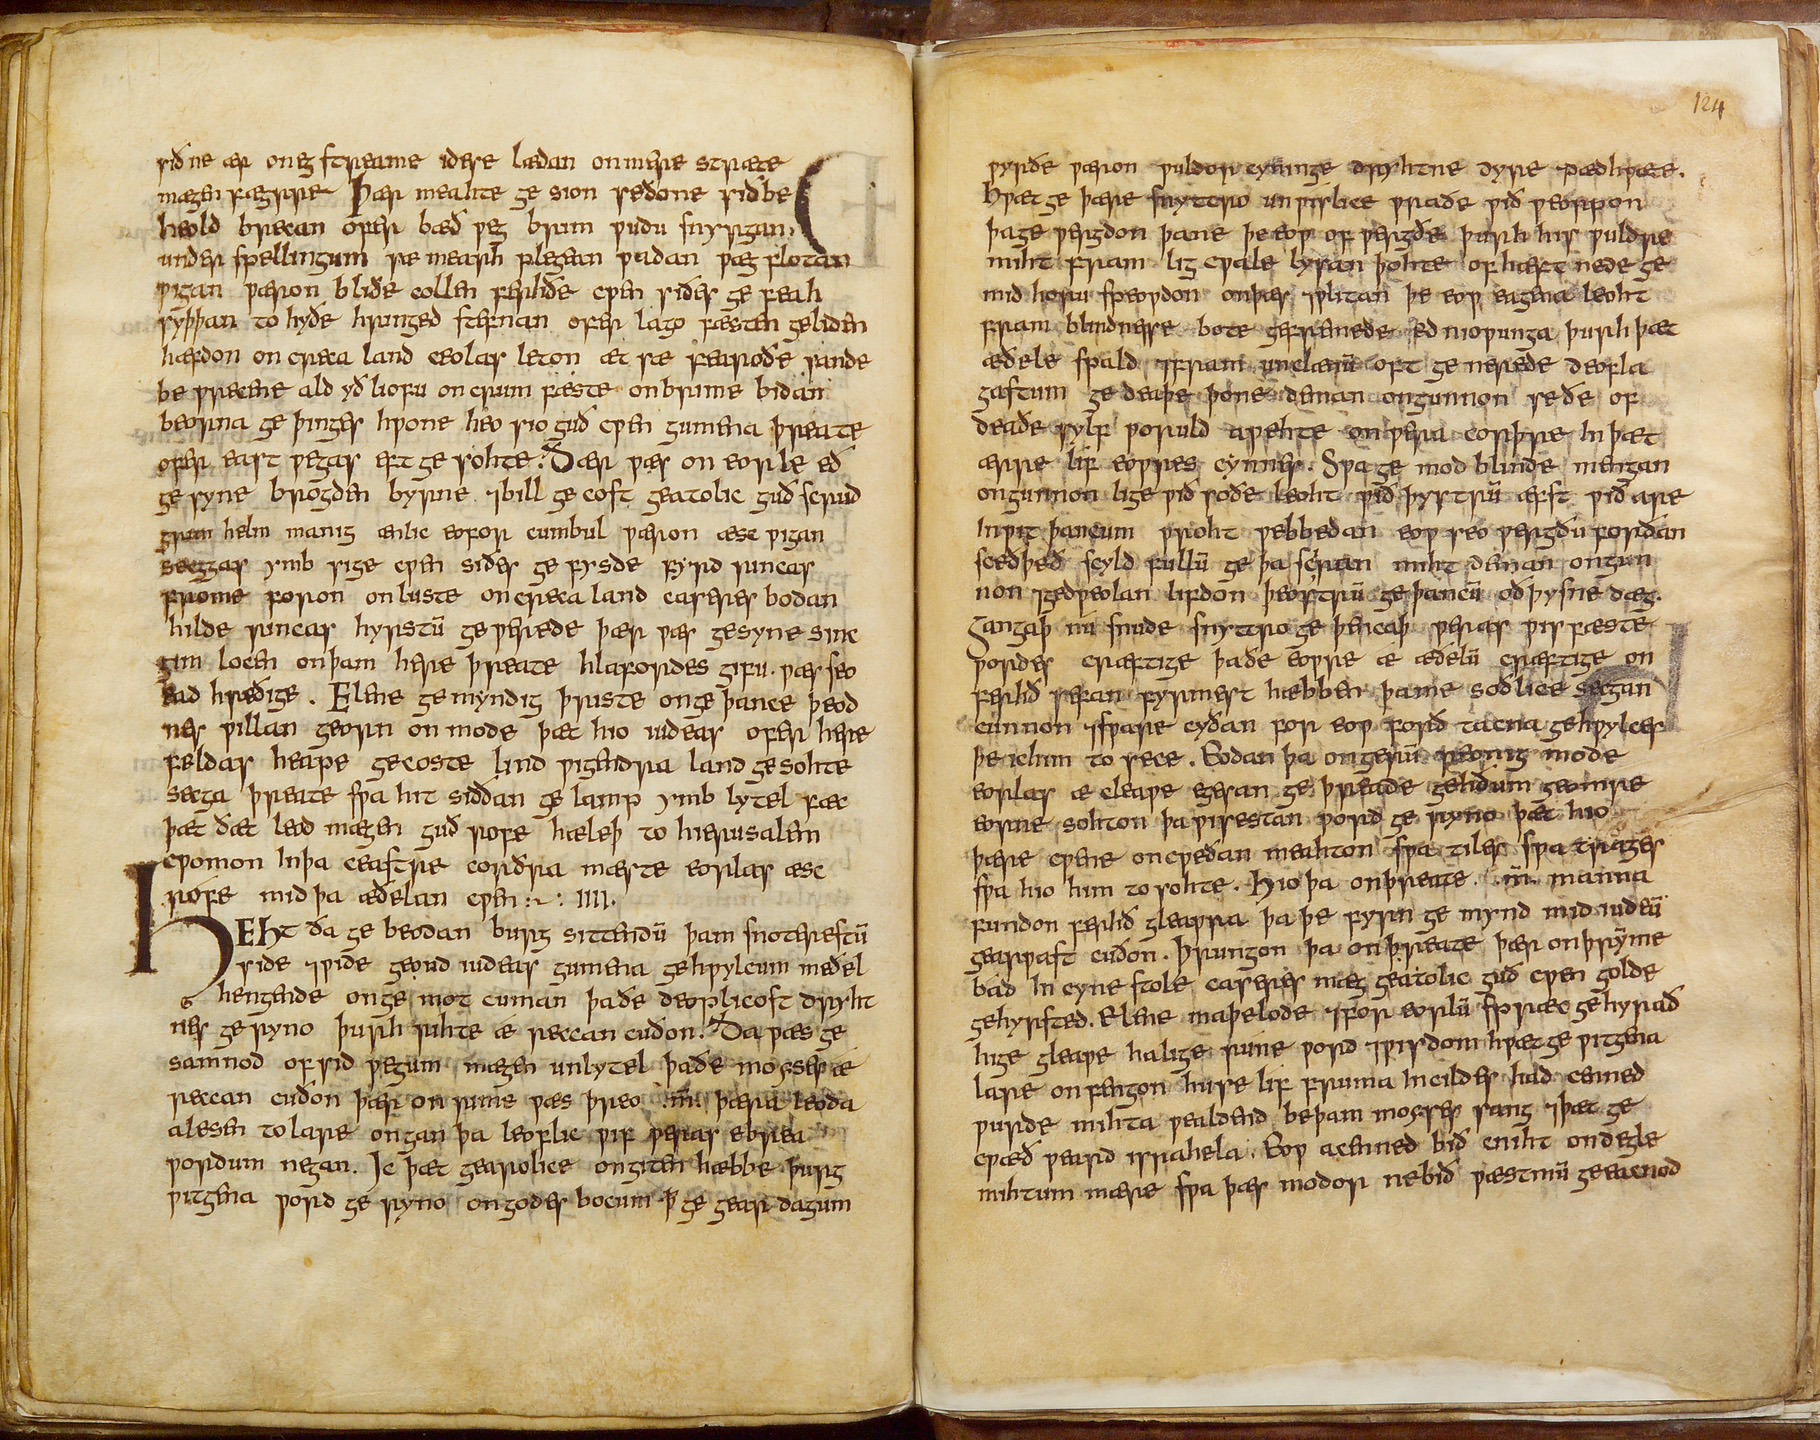 sið ne ær on eg streame idese lædan on mere stræte
mægen fægrre Þær meahte ge sion se ðone sið be
heold brecan ofer bæð ƿeg brim ƿudu snyrgan
under spellingum sæ mearh plegean ƿadan ƿæg flotan
ƿigan ƿæron bliðe collen ferhðe cƿen siðes ge feah
syþþan to hyðe hringed stefnan ofer lago fæsten geliden
hæfdon on creca land ceolas leton æt sæ fearoðe sande
be ƿrecene ald yð liofu on crum fæste on brime bidan
beorna ge þinges hƿone heo sio guð cƿen gumena þreate
ofer east ƿegas eft ge sohte. Ðær ƿæs on eorle eð
ge syne brogden byrne ⁊ bill ge cost geatolic guð scrud
grim helm manig ænlic eofor cumbul ƿæron æsc ƿigan
secggas ymb sige cƿen siðes ge fysde fyrd rincas
frome foron on luste on creca land caseres bodan
hilde rincas hyrstū ge ƿerede þær ƿæs gesyne sinc
gim locen on þam here þreate hlafordes gifu. ƿæs seo
ead hreðige. Elene ge myndig þriste on ge þance þeod
nes ƿillan georn on mode þæt hio iudeas ofer here
feldas heape gecoste lind ƿigendra land gesohte
secga þreate sƿa hit siððan ge lamp ymb lytel fæc
þæt ðæt leod mægen guð rofe hæleþ to hierusalem
cƿomon in þa ceastre corðra mæste eorlas æsc
rofe mid þa æðelan cƿen :⁊ : IIII.
HEHt ða ge beodan burg sittendū þam snoterestū
side ⁊ ƿide geond iudeas gumena gehƿylcum meðel
hengende on ge mot cuman þa ðe deoplicost dryht
nes ge ryno þurh rihte æ reccan cuðon. Ða ƿæs ge
samnod of sid ƿegum mægen unlytel þa ðe moyses æ
reccan cuðon þær on rime ƿæs þreo .m̄. þæra leoda
alesen to lare ongan þa leoflic ƿif ƿeras ebrea
ƿordum negan. Ic þæt gearolice ongiten hæbbe þurg
ƿitgena ƿord ge ryno on godes bocum þ ge gear dagum
124
ƿyrðe ƿæron ƿuldor cyninge dryhtne dyre ⁊ dædhƿæte.
Hƿæt ge þære snyttro unƿislice ƿraðe ƿið ƿeorpon
þa ge ƿergdon þane þe eoƿ of ƿergðe þurh his ƿuldres
miht fram lig cƿale lysan þohte of hæft nede ge
mid horu speoƿdon on þæs ⁊ƿlitan þe eoƿ eagena leoht
fram blindnesse bote gefremede ednioƿunga þurh þæt
æðele spald ⁊fram unclænū oft ge nerede deofla
gastum ge deaþe þone deman ongunnon se ðe of
deaðe sylf ƿoruld aƿehte on ƿera corþre in þæt
ærre lif eoƿres cynnes. Sƿa ge mod blinde mengan
ongunnon lige ƿið soðe leoht ƿið þystrū æfst ƿið are
inƿit þancum ƿroht ƿebbedan eoƿ seo ƿergðu forðan
sceðþeð scyld fullū ge þa sciran miht deman ongun
non ⁊gedƿeolan lifdon þeostrū ge þancū oð þysne dæg.
Gangaþ nu snude snyttro ge þencaþ ƿeras ƿis fæste
ƿordes cræftige þa ðe eoƿre æ æðelū cræftige on
ferhð sefan fyrmest hæbben þa me soðlice secgan
cunnon ⁊sƿare cyðan for eoƿ forð tacna gehƿylces
þe ic him to sece. Eodan þa on gerū reonig mode
eorlas æ cleaƿe egesan ge þreade gehðum geomre
eorne sohton þa ƿisestan ƿord ge ryno þæt hio
þære cƿene oncƿeðan meahton sƿa tiles sƿa trages
sƿa hio him to sohte. Hio þa on þreate .m̄. manna
fundon ferhð gleaƿra þa þe fyrn ge mynd mid iudeū
gearƿast cuðon. Þrungon þa on þreate þær on þrymme
bad in cyne stole caseres mæg geatolic guð cƿen golde
gehyrsted. Elene maþelode ⁊for eorlū spræc gehyrað
hige gleaƿe halige rune ƿord ⁊ƿisdom hƿæt ge ƿitgena
lare on fengon hu se lif fruma in cildes had cenned
ƿurde mihta ƿealdend be þam moyses sang ⁊þæt ge
cƿæð ƿeard israhela. Eoƿ acenned bið cniht on degle
mihtum mære sƿa þæs modor ne bið ƿæstmū geeacnod